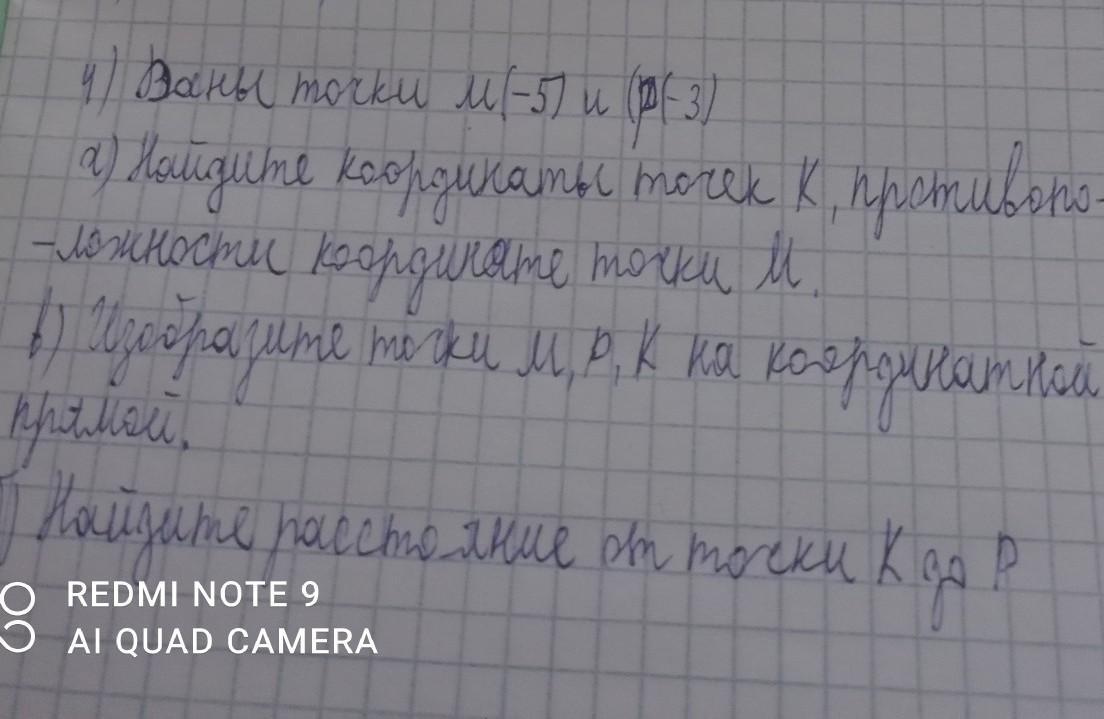 4) Даны точки М(-5) и (Р(-3)
а) Найдите координаты точек К, противопо-
-ложности координате точки М.
в) Изобразите точки М, Р, К на координатной
прямой.
Найдите расстояние от точки К до Р
REDMI NOTE 9
AI QUAD CAMERA